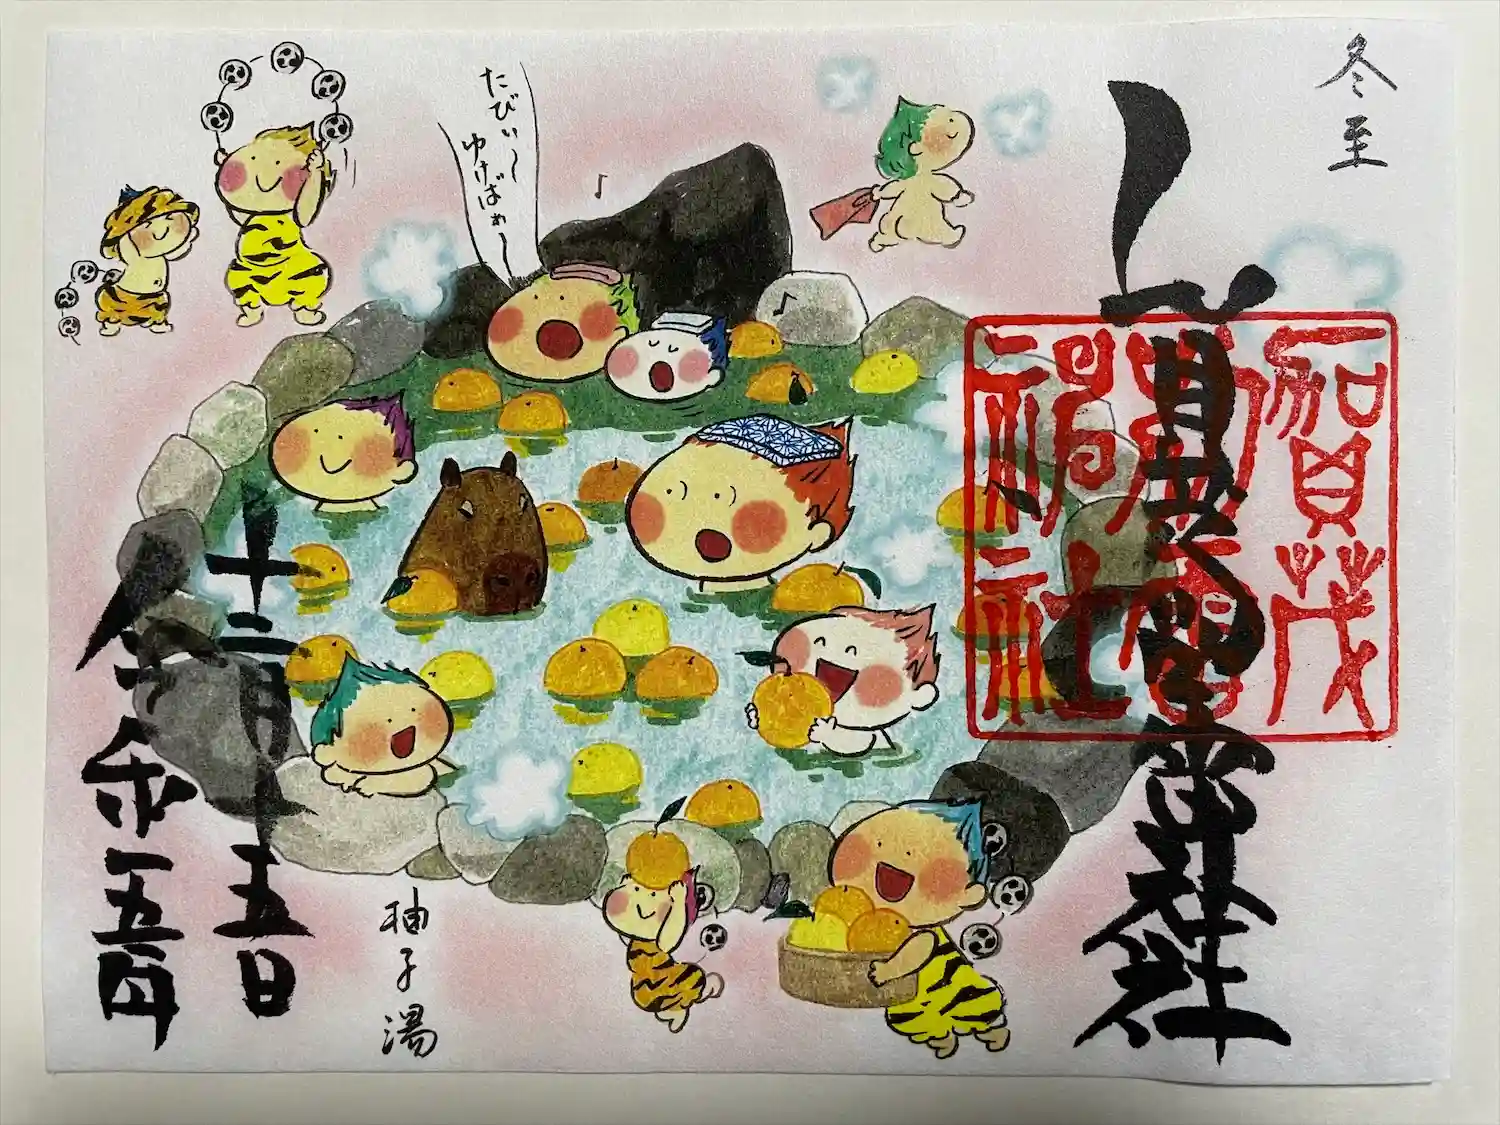 冬至
賀茂別雷神社
賀茂
別雷
神社
たびぃ〜
ゆけばぁ〜
柚子湯
十二月十五日
令和五年